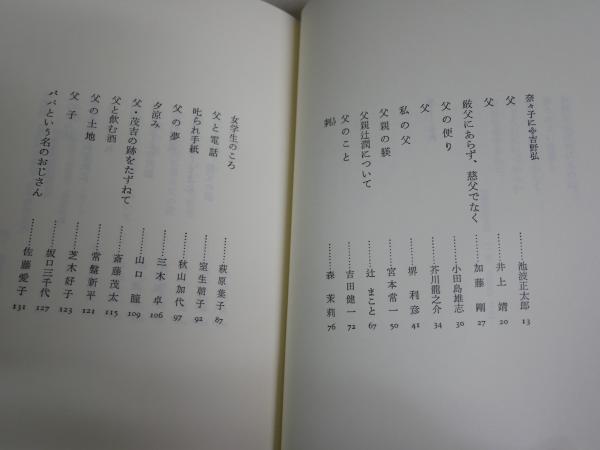 奈々子に◇吉野弘
父……池波正太郎 13
父……井上 靖 20
厳父にあらず、慈父でなく……加藤 剛 27
父の便り……小田島雄志 30
父……芥川龍之介 34
私の父……堺 利彦 41
父親の躾……宮本常一 50
父親辻潤について……辻 まこと 67
父のこと……吉田健一 72
刺……森 茉莉 76
女学生のころ……萩原葉子 87
父と電話……室生朝子 92
叱られ手紙……秋山加代 97
父の夢……三木 卓 106
夕涼み……山口 瞳 109
父・茂吉の跡をたずねて……斎藤茂太 115
父と飲む酒……常盤新平 121
父の土地……芝木好子 123
父 子……坂口三千代 127
パパという名のおじさん……佐藤愛子 131